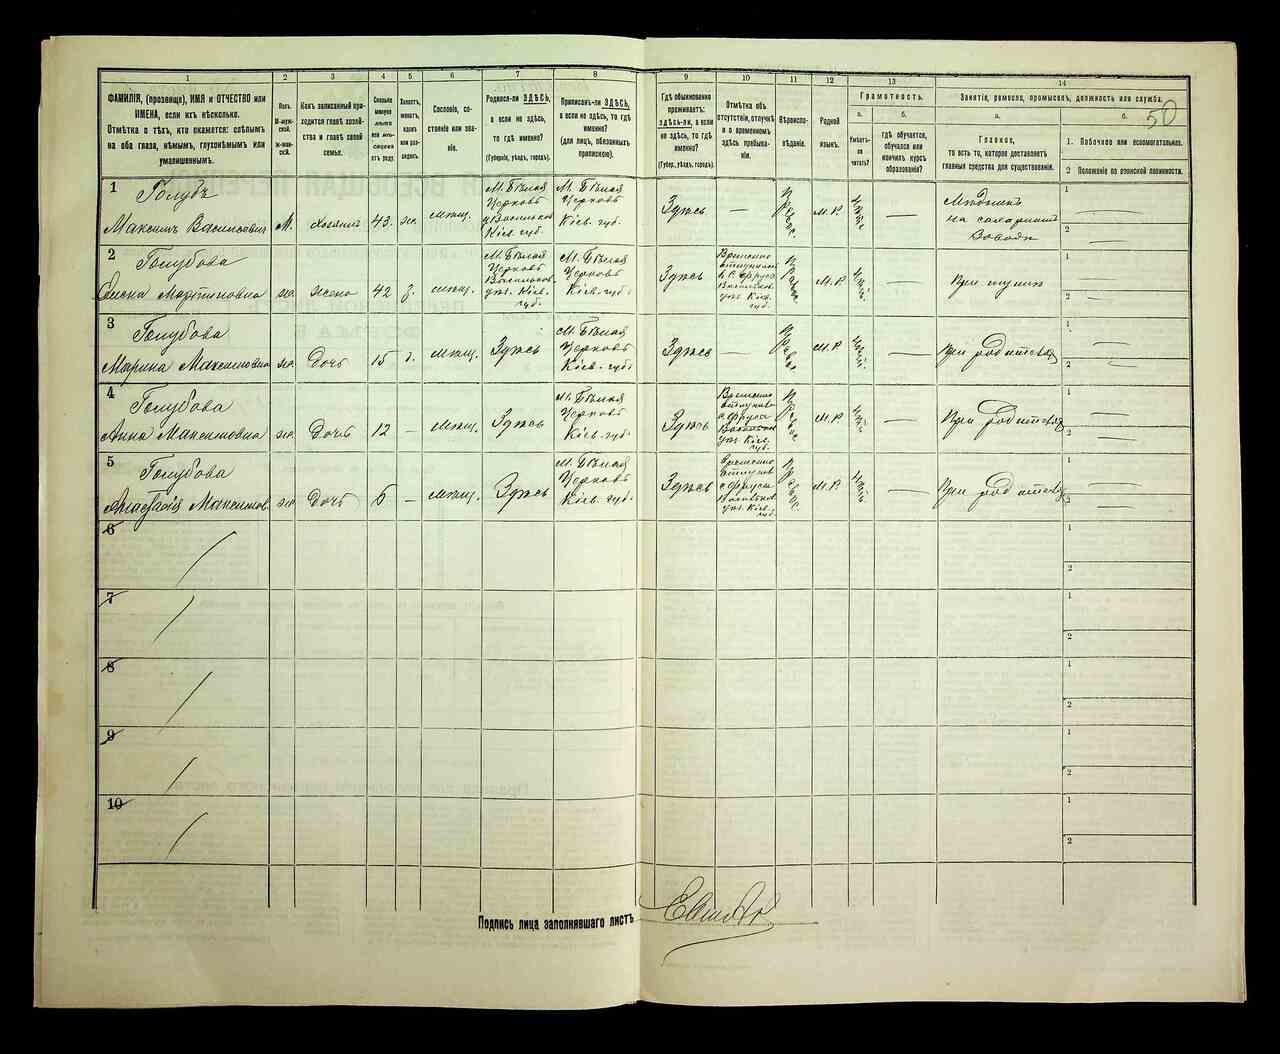 1
2
3
4
5
6
7
8
ФАМИЛІЯ, (прозвище), ИМЯ и ОТЧЕСТВО или
ИМЕНА, если ихъ нѣсколько.
Отмѣтка о тѣхъ, кто окажется: слѣпымъ
на оба глаза, нѣмымъ, глухонѣмымъ или
умалишеннымъ.
Полъ.
М-мужской.
Ж-женскій.
Какъ записанный приходится
главѣ хозяйства и главѣ своей
семьи.
Сколько
минуло
лѣтъ
или мѣсяцевъ
отъ роду.
Холостъ,
женатъ,
вдовъ
или разведенъ.
Сословіе, состояніе
или званіе.
Родился-ли ЗДѢСЬ,
а если не здѣсь,
то гдѣ именно?
(Губернія, уѣздъ, городъ).
Приписанъ-ли ЗДѢСЬ,
а если не здѣсь, то гдѣ
именно?
(для лицъ, обязанныхъ
припискою).
9
10
11
12
13
14
Гдѣ обыкновенно
проживаетъ:
здѣсь-ли, а если
не здѣсь, то гдѣ
именно?
(Губер., уѣздъ, городъ).
Отмѣтка объ
отсутствіи, отлучкѣ
и о временномъ
здѣсь пребываніи.
Вѣроисповѣданіе.
Родной
языкъ.
Грамотность.
а.
Умѣетъ-ли
читать?
б.
гдѣ обучается,
обучался или
кончилъ курсъ
образованія?
Занятія, ремесло, промыселъ, должность или служба.
а.
Главное,
то есть то, которое доставляетъ
главныя средства для существованія.
б.
50
1. Побочное или вспомогательное.
2 Положеніе по воинской повинности.
1
Голубъ
Максимъ Васильевич
М.
хозяинъ
43.
ж.
мѣщ.
М. Бѣлая
Церковь
у. Васильков
Кіев. губ.
М. Бѣлая
Церковь
Кіев. губ.
Здѣсь
—
Правос.
М. Р.
—
Мѣдникъ
на сахарномъ
Заводѣ
1 —
2 —
2
Голубова
Елена Мартиновна
жен
Жена
42
з.
мѣщ.
М. Бѣлая
Церковь
Васильков.
уѣз. Кіев.
губ.
М. Бѣлая
Церковь
Кіев. губ
Здѣсь
Временно
Васильков.
уѣз. Кіев.
губ.
Правос
М. Р.
—
При мужѣ
1 —
2 —
3
Голубова
Марина Максимовна
жен
Дочь
15
мѣщ.
Здѣсь
М. Бѣлая
Церковь
Кіев. губ
Здѣсь
—
Правос
М. Р
—
При родителях
1. —
2 —
4
Голубова
Анна Максимовна
жен
Дочь
12
—
мѣщ.
Здѣсь
М. Бѣлая
Церковь
Кіев. губ.
Здѣсь
Временно
уѣз. Кіев.
губ.
Правос
М. Р.
—
При родителях
1 —
2 —
5
Голубова
Анастасія Максимов.
жен
Дочь
6
—
мѣщ.
Здѣсь
М. Бѣлая
Церковь
Кіев. губ.
Здѣсь
Временно
уѣз. Кіев.
губ.
Правос.
М. Р.
—
При родителях
1 —
2 —
6
1
2
7
1
2
8
1
2
9
1
2
10
1
2
Подпись лица заполнявшаго листъ